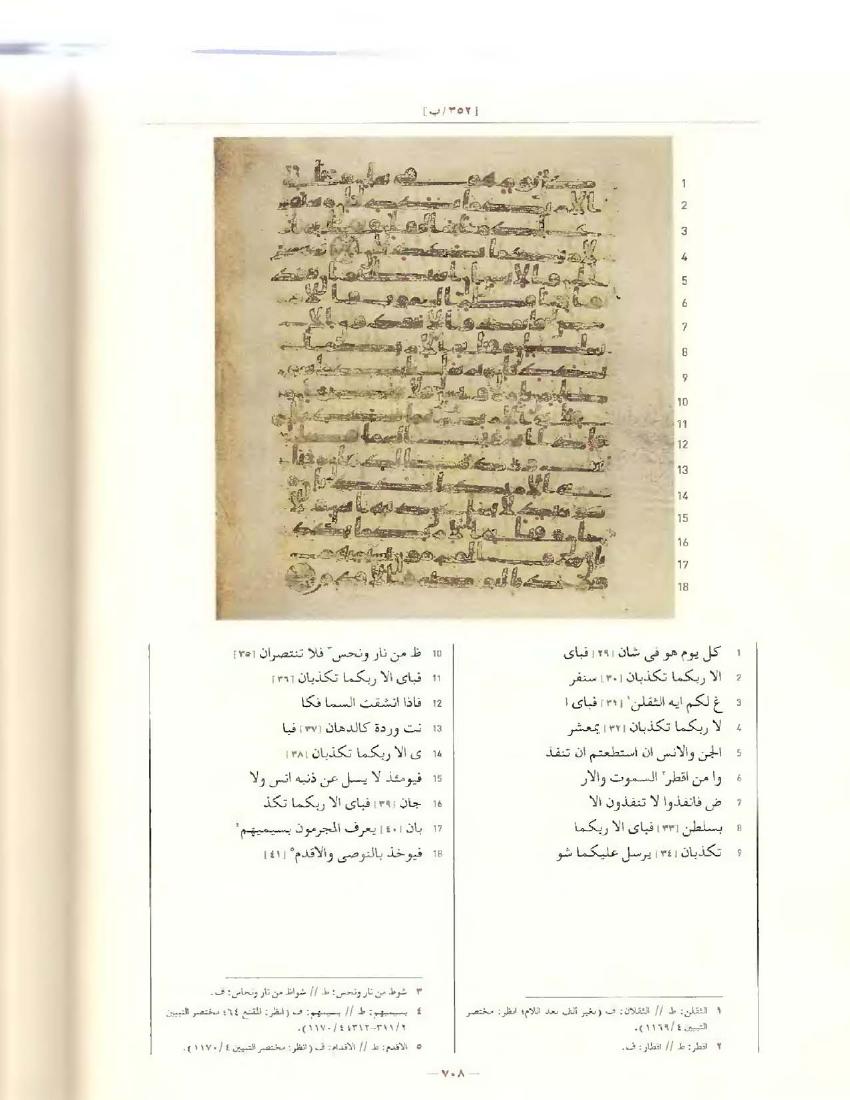 [٣٥٢/ب]
1
2
3
4
5
6
7
8
9
10
11
12
13
14
15
16
17
18
1 كل يوم هو فى شان [٢٩] فباى
2 الا ربكما تكذبان [٣٠] سنفر
3 غ لكم ايه الثقلن١ [٣١] فباى ا
4 لا ربكما تكذبان [٣٢] يمعشر
5 الجن والانس ان استطعتم ان تنفذ
6 وا من اقطر٢ السموت والار
7 ض فانفذوا لا تنفذون الا
8 بسلطن [٣٣] فباى الا ربكما
9 تكذبان [٣٤] يرسل عليكما شو
10 ظ من نار ونحس٣ فلا تنتصران [٣٥]
11 فباى الا ربكما تكذبان [٣٦]
12 فاذا انشقت السما فكا
13 نت وردة كالدهان [٣٧] فبا
14 ى الا ربكما تكذبان [٣٨]
15 فيومئذ لا يسل عن ذنبه انس ولا
16 جان [٣٩] فباى الا ربكما تكذ
17 بان [٤٠] يعرف المجرمون بسيميهم٤
18 فيوخذ بالنوصى والاقدم٥ [٤١]
١ الثقلن: ط // الثقلان: ف (بغير ألف بعد اللام؛ انظر: مختصر
التبيين ١١٦٩/٤).
٢ اقطر: ط // اقطار: ف.
٣ شوظ من نار ونحس: ط // شواظ من نار ونحاس: ف.
٤ بسيميهم: ط // بسيمهم: ف (انظر: المقنع ٤٦٤ مختصر التبيين
٣١١/٢-٣١٢؛ ١١٧٠/٤).
٥ الاقدم: ط // الاقدام: ف (انظر: مختصر التبيين ١١٧٠/٤).
— ٧٠٨ —